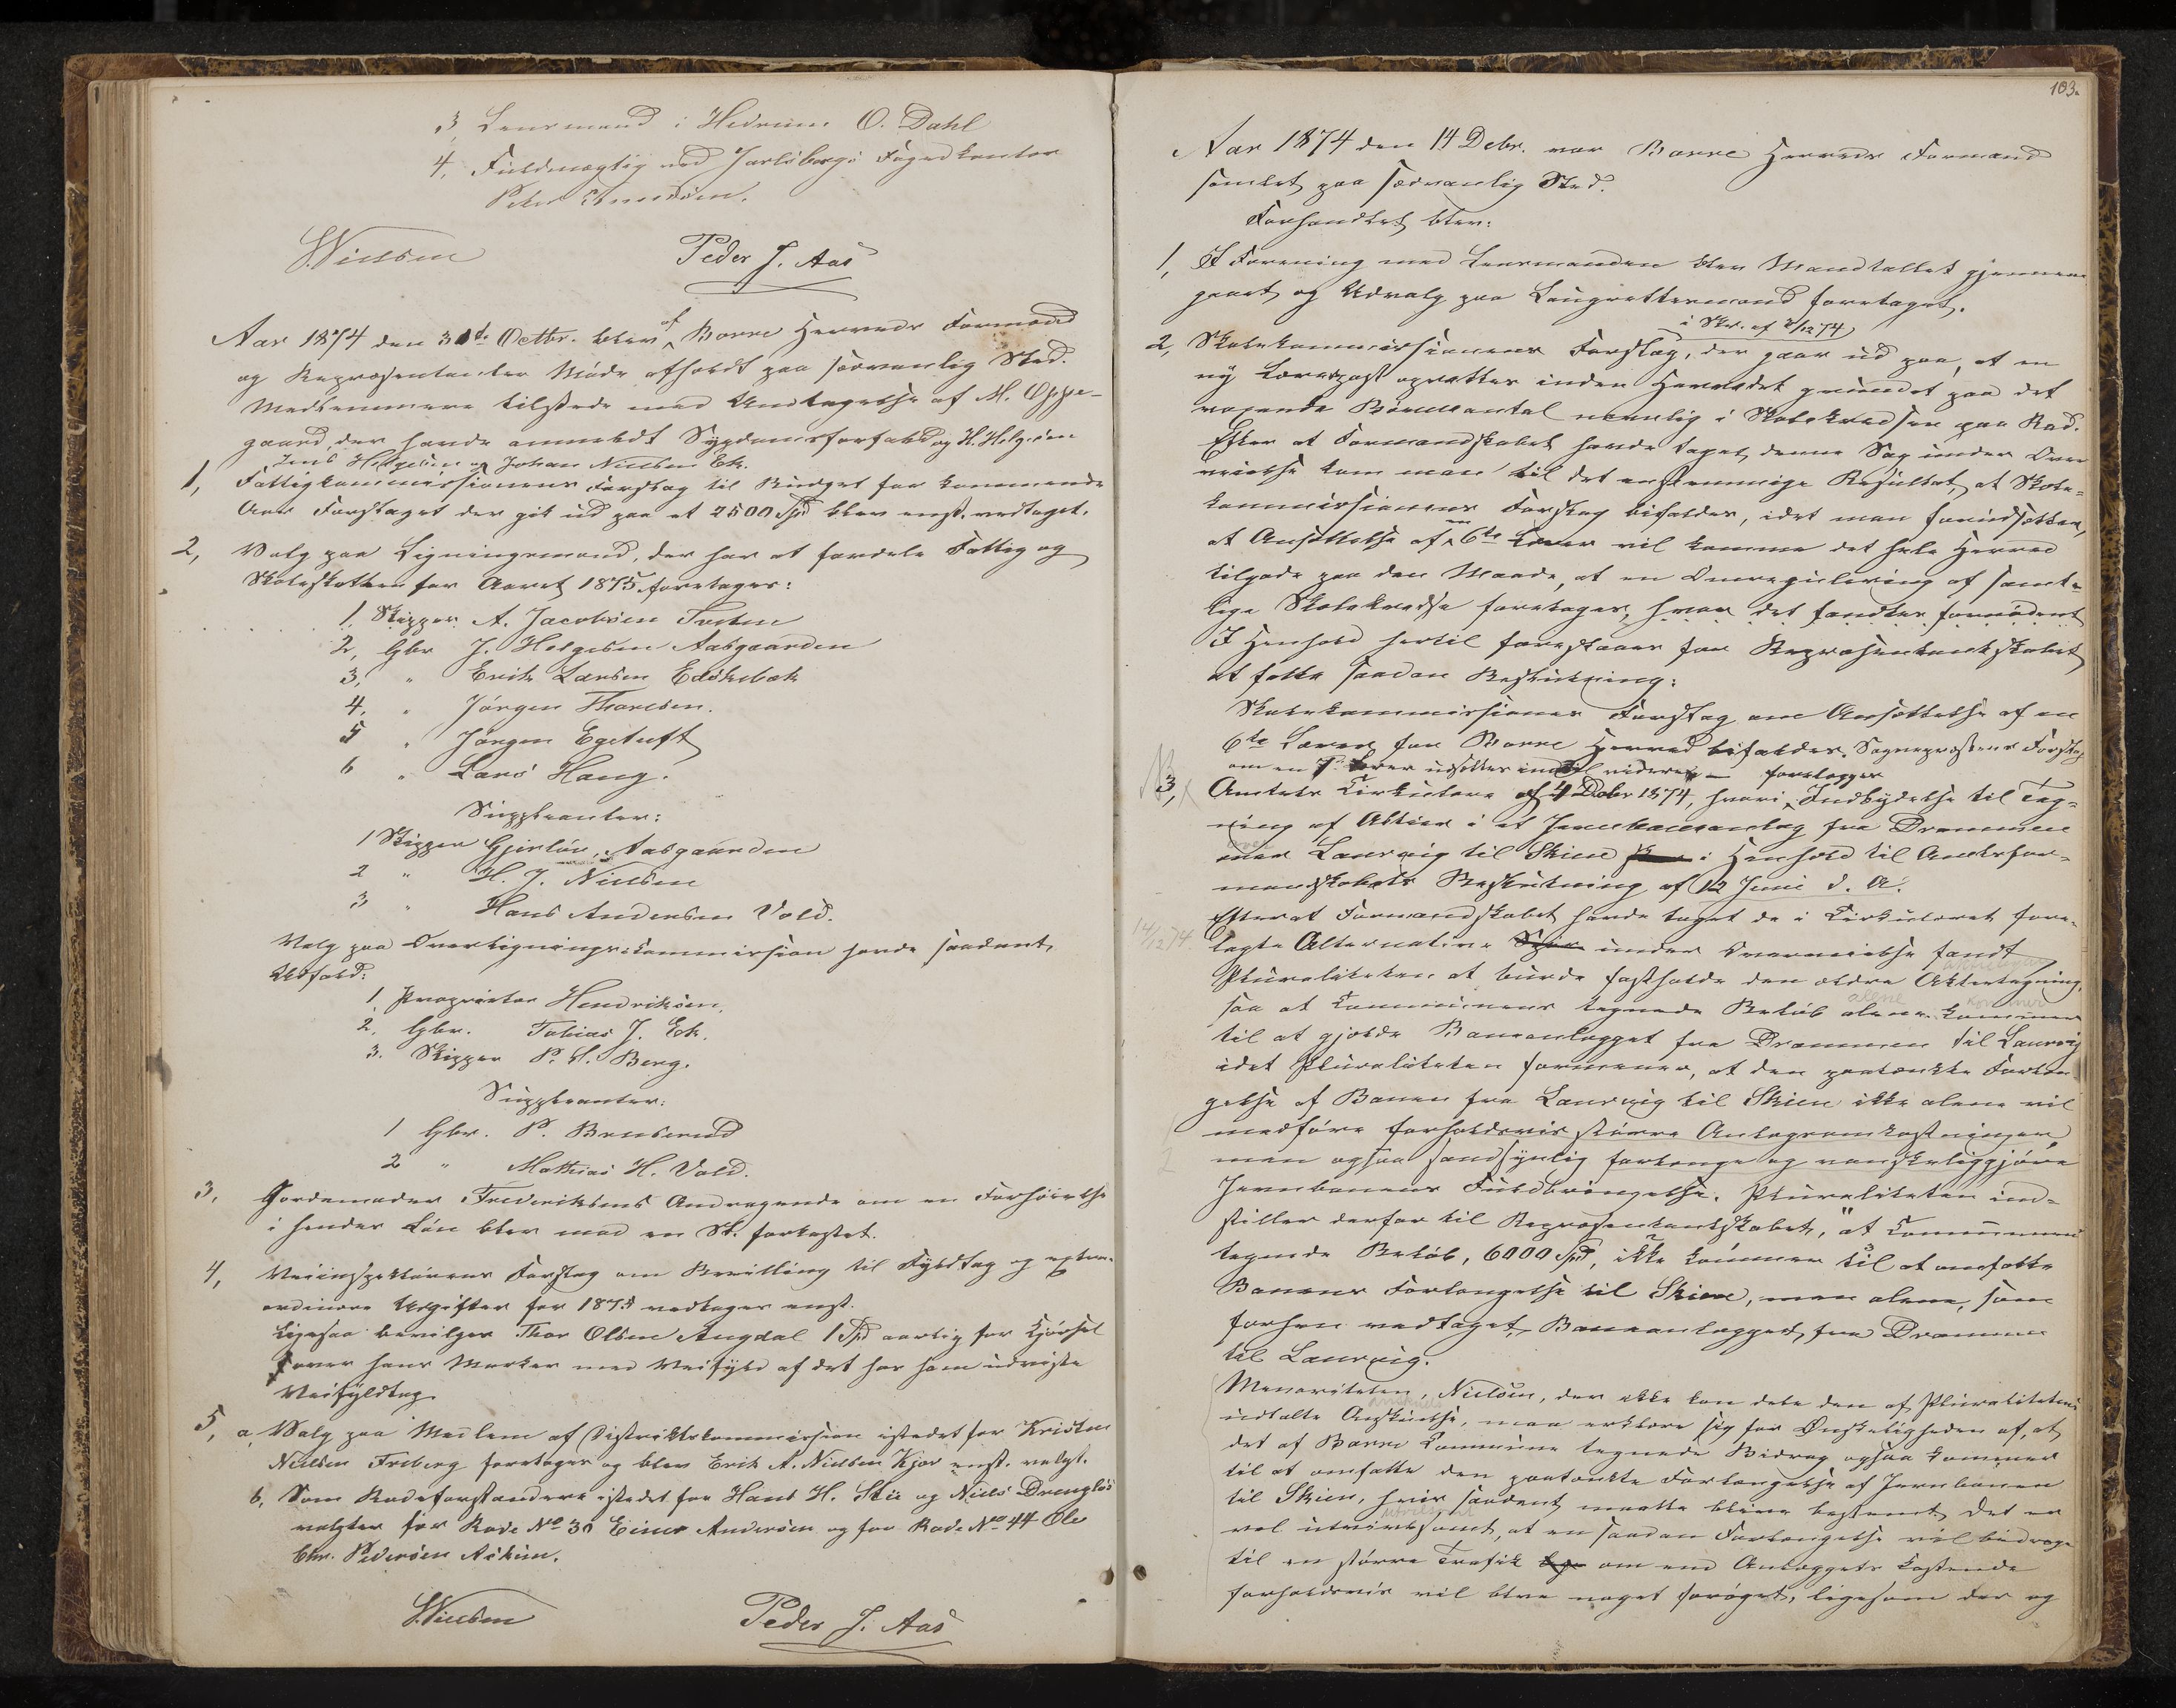 3, Lensmand i Hedrum O. Dahl
4, Fuldmægtig ved Jarlsbergs Fogedkontor
Peter
Nielsen Peder J. Aas
Aar 1874 den 31te Octbr. blev af Borre Herreds Formænd
og Repræsentanter Møde afholdt paa sædvanlig Sted.
Medlemmerne tilstede med Undtagelse af M. Oppe-
gaard, der havde anmeldt Sygdomsforfald og H. Helgesen
Jens Helgesen og Johan Nielsen Ek.
1, Fattigkommissionens Forslag til Budget for kommende
Aar Forslaget der gik ud paa et 2500 Spd blev enst. vedtaget.
2, Valg paa Ligningsmænd, der har at fordele Fattig og
Skoleskatten for Aaret 1875 foretages:
1. Skipper A. Jacobsen
2, Gbr J. Helgesen Aasgaarden
3, " Erik Larsen
4, " Jørgen Thoresen.
5 " Jørgen Egetuft
6 " Lars Haug.
Suppleanter:
1 Skipper Gjerløw, Aasgaarden
2 " H. J. Nielsen
3 " Hans Andersen Vold.
Valg paa Overligningskommission havde saadant
Udfald:
1. Proprietær Hendriksen.
2. Gbr. Tobias J. Ek.
3. Skipper P. A. Berg.
Suppleanter:
1 Gbr. P.
2 " Mathias H. Vold.
3, Jordemoder Frederiksens Andragende om en Forhøielse
i hendes Løn blev mod en St. forkastet.
4, Veiinspektørens Forslag om Bevilling til Fyldtag og extra-
ordinære Udgifter for 1875 vedtages enst.
Ligesaa bevilges Thor Olsen Augdal 1 Spd aarlig for Kjørsel
over hans Marker med Veifyld af det hos ham udviste
Veifyldtag.
5, a, Valg paa Medlem af Distriktskommission istedet for Kristen
Nielsen Freberg foretages og blev Erik A. Nielsen Kjær enst. valgt.
b, Som Rodeforstandere istedet for Hans H. Stie og Niels
valgtes for Rode No 30 Einar Andersen og for Rode No 44 Ole
Chr. Pedersen Askim.
Nielsen Peder J. Aas
103.
Aar 1874 den 14 Debr. var Borre Herreds Formænd
samlet paa sædvanlig Sted.
Forhandlet blev:
1, I Forening med Lensmanden blev Mandtallet gjennem-
gaaet og Udvalg paa Laugrettemænd foretaget.
i Skr. af 2/12 74
2, Skolekommissionens Forslag, der gaar ud paa, at en
ny Lærerpost oprettes inden Herredet grundet paa det
voxende Børneantal nemlig i Skolekredsen paa Rød.
Efter at Formandskabet havde taget denne Sag under Over
veielse kom man til det enstemmige Resultat, at Skole-
kommissionens Forslag bifaldes, idet man forudsætter,
at Ansættelse af en 6te Lærer vil komme det hele Herred
tilgode paa den Maade, at en Omregulering af samt-
lige Skolekredse foretages, hvor det fandtes fornødent
I Henhold hertil foreslaaes for Repræsentantskabet
at fatte saadan Beslutning:
Skolekommissionens Forslag om Ansættelse af en
6te Lærer for Borre Herred bifaldes. Sognepræstens Forslag
om en 7de Lærer udsættes indtil videre. –
forelægges
3, Amtets Cirkulære af 4 Debr 1874, hvori Indbydelse til Teg-
ning af Aktier i et Jernbaneanlæg fra Drammen
over Laurvig til Skien i Henhold til Amtsfor-
mandskabets Beslutning af 12 Juni d. A.
14/12 74.
Efterat Formandskabet havde taget de i Cirkulæret fore-
lagte Alternativer under Overveielse fandt
Pluraliteten at burde fastholde den ældre Aktietegning,
alene kommer
saa at Kommunens tegnede Beløb alene kommer
til at gjælde Baneanlægget fra Drammen til Laurvig
idet Pluraliteten formener, at den paatænkte Forlæn-
gelse af Banen fra Laurvig til Skien ikke alene vil
medføre forholdsvis større Anlægsomkostninger,
men ogsaa sandsynlig forlænge og vanskeliggjøre
Jernbanens Fuldbringelse. Pluraliteten ind-
stiller derfor til Repræsentantskabet, "at Kommunens
tegnede Beløb, 6000 Spd, ikke kommer til at omfatte
Banens Forlængelse til Skien, men alene, som
forhen vedtaget, Baneanlægget fra Drammen
til Laurvig.
Menoriteten, Nielsen, der ikke kan dele den af Pluraliteten
udtalte Anskuelse, maa erklære sig for Ønskeligheden af, at
det af Borre Kommune tegnede Bidrag ogsaa kommer
til at omfatte den paatænkte Forlængelse af Jernbanen
til Skien, hvis saadant maatte blive bestemt. Det er
vel utvivlsomt, at en saadan Forlængelse vil bidrage
til en større Trafik om end Anlæggets Kostende
forholdsvis vil blive noget forøget, ligesom der og